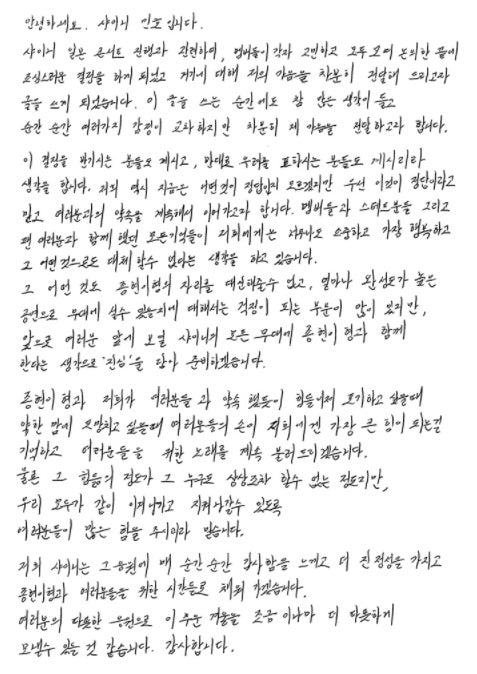 안녕하세요. 샤이니 민호입니다.
샤이니 일본 콘서트 진행과 관련하여, 멤버들이 각자 고민하고 모두 모여 논의한 끝에
조심스러운 결정을 하게 되었고 거기에 대해 저의 마음을 차분히 전달해 드리고자
글을 쓰게 되었습니다. 이 글을 쓰는 순간에도 참 많은 생각이 들고
순간 순간 여러가지 감정이 교차하지만 차분히 제 마음을 전달하고자 합니다.
이 결정을 반기시는 분들도 계시고, 반대로 우려를 표하시는 분들도 계시리라
생각을 합니다. 저희 역시 지금은 어떤것이 정답일지 모르겠지만 우선 이것이 정답이라고
믿고 여러분과의 약속을 계속해서 이어가고자 합니다. 멤버들과 스태프분들 그리고
팬 여러분과 함께 했던 모든기억들이 저희에게는 너무나도 소중하고 가장 행복하고
그 어떤것으로도 대체할수 없다는 생각을 하고 있습니다.
그 어떤 것도 종현이형의 자리를 대신해줄수 없고, 얼마나 완성도가 높은
공연으로 무대에 설수 있을지에 대해서는 걱정이 되는 부분이 많이 있지만,
앞으로 여러분 앞에 보일 샤이니의 모든 무대에 종현이 형과 함께
한다는 생각으로 '진심'을 담아 준비하겠습니다.
종현이 형과 저희가 여러분들과 약속 했듯이 힘들어서 포기하고 싶을때
약한 맘에 도망치고 싶을때 여러분들의 손이 저희에겐 가장 큰 힘이 되는걸
기억하고 여러분들을 위한 노래를 계속 불러드리겠습니다.
물론 그 힘듦의 정도가 그 누구도 상상조차 할수 없는 정도지만,
우리 모두가 같이 이겨나가고 지켜나갈수 있도록
여러분들이 많은 힘을 주시리라 믿습니다.
저희 샤이니는 그 응원에 매 순간 순간 감사함을 느끼고 더 진정성을 가지고
종현이형과 여러분들을 위한 시간들로 채워 가겠습니다.
여러분의 따뜻한 응원으로 이 추운 겨울을 조금이나마 더 따뜻하게
보낼수 있을 것 같습니다. 감사합니다.